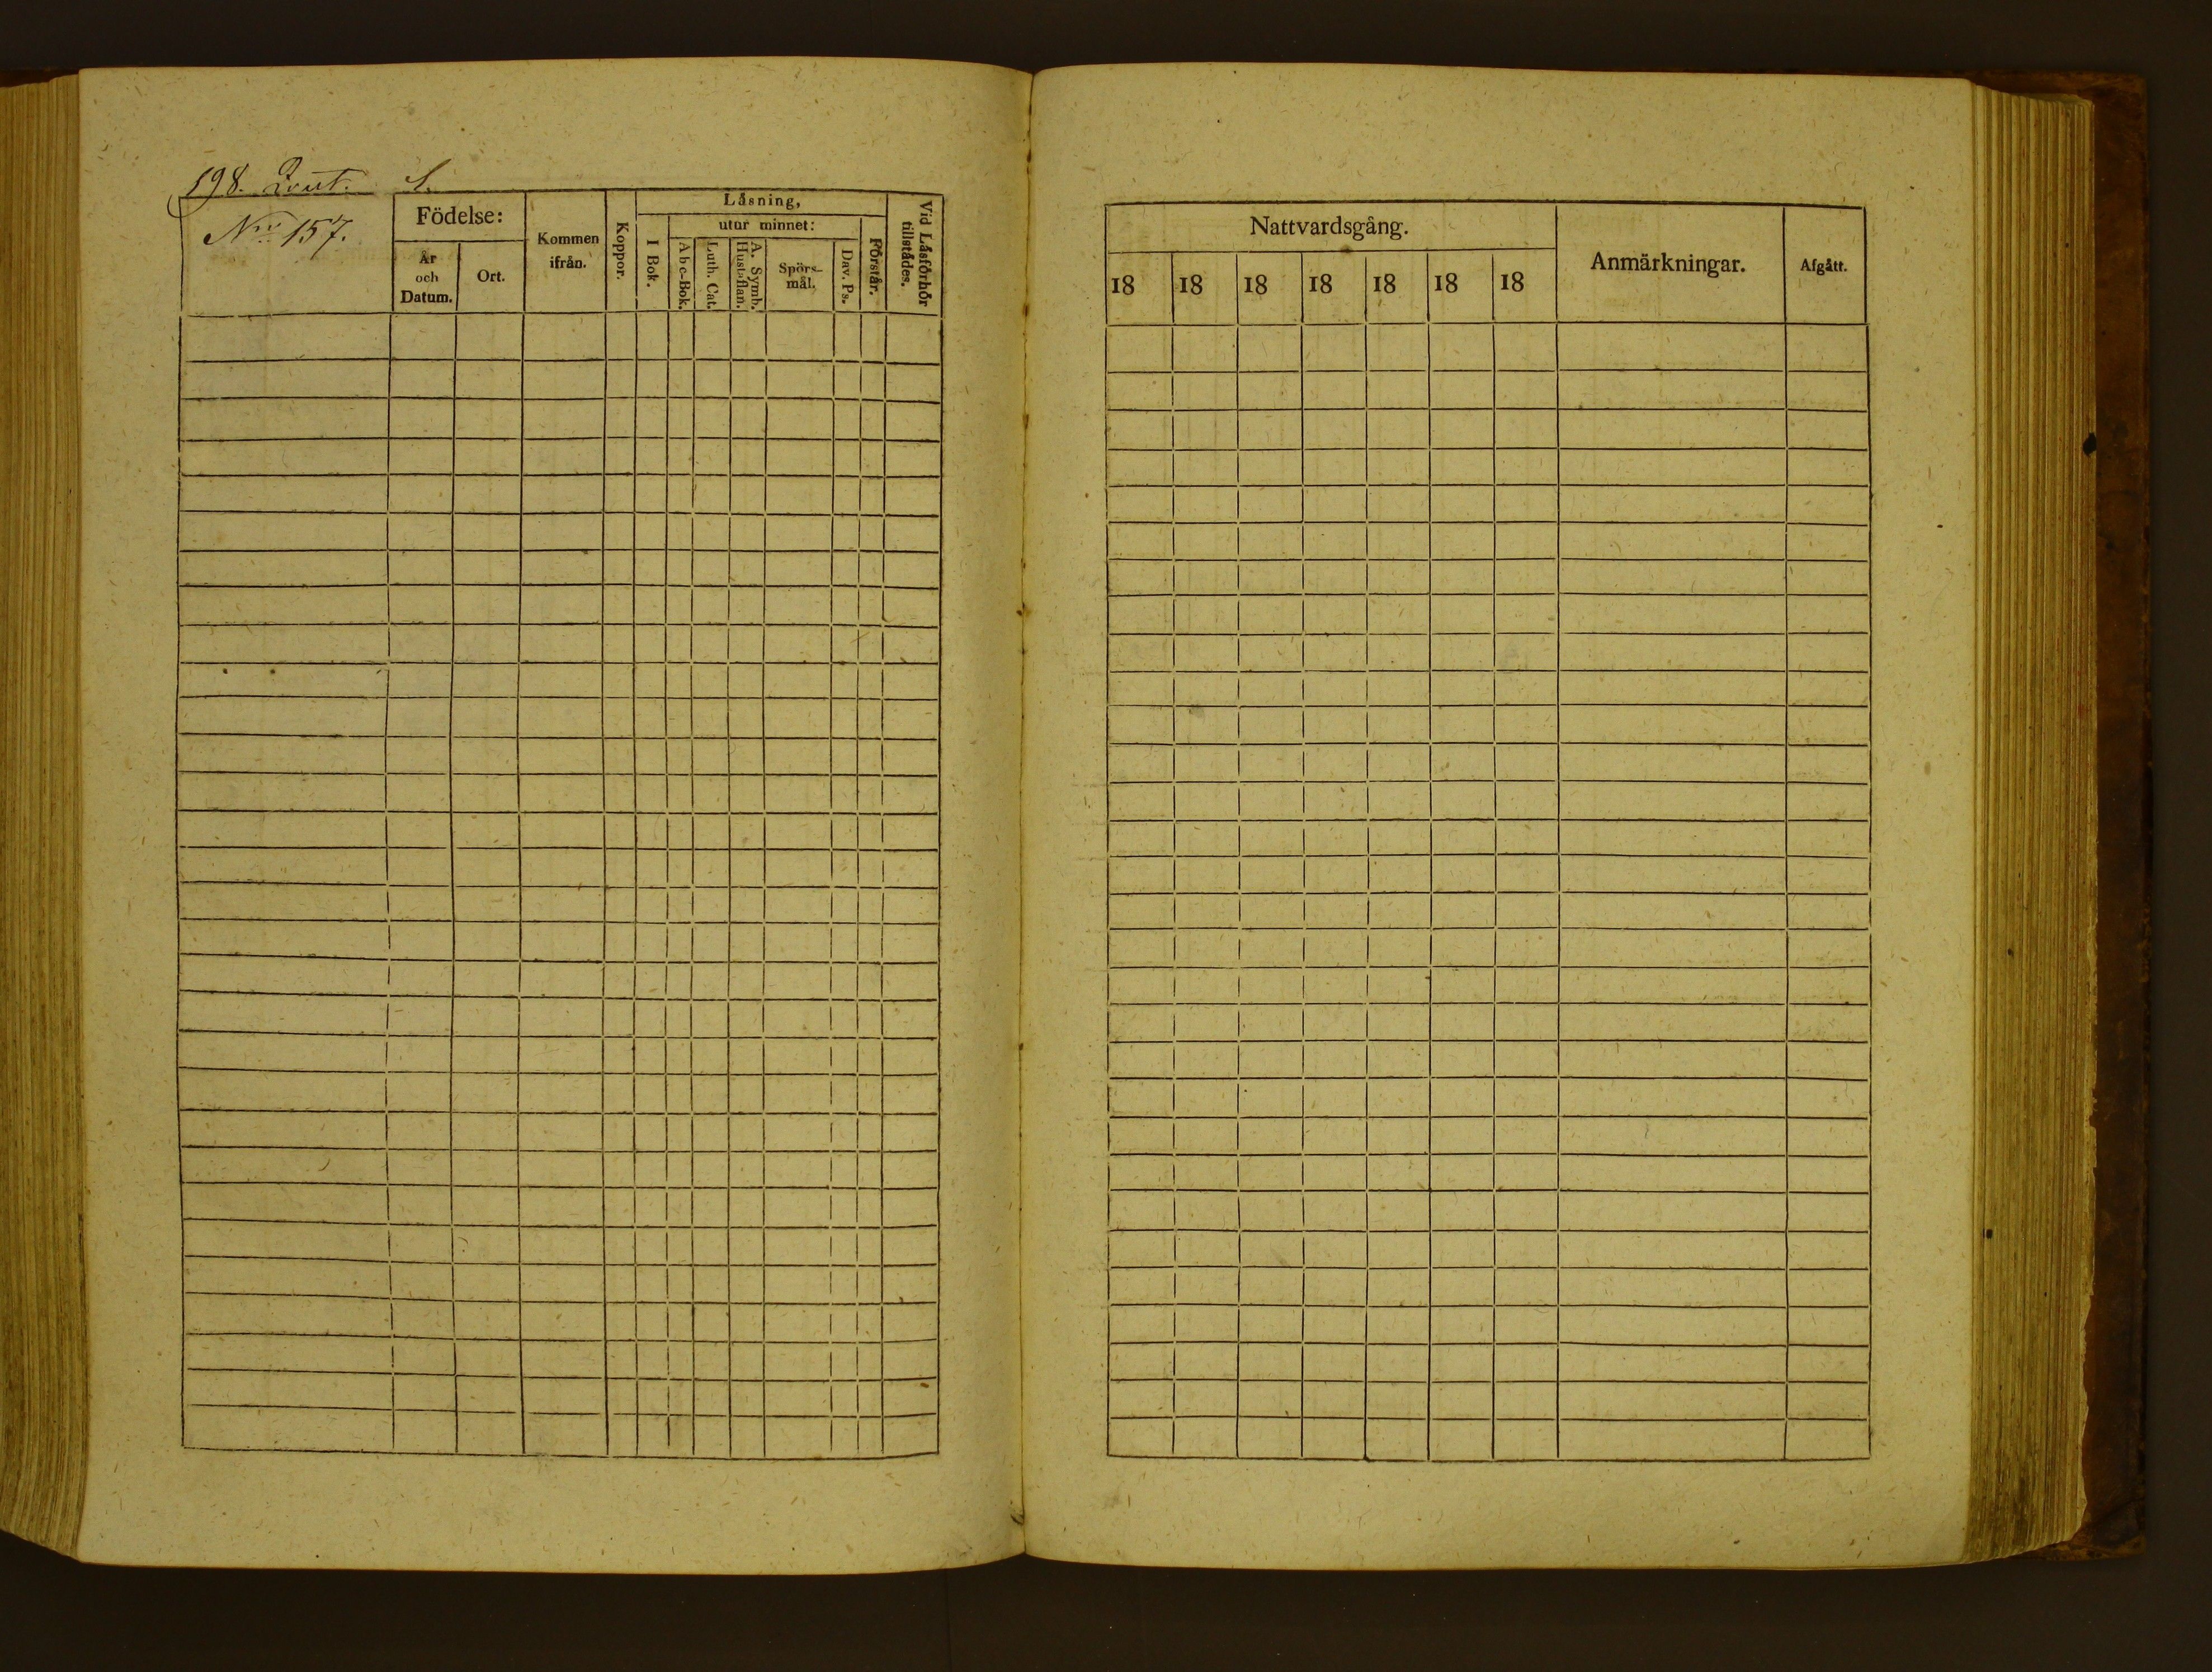 198. Qvart. 1.
Nro 157.
Födelse:
År
och
Datum.
Ort.
Kommen
ifrån.
Koppor.
Låsning,
I Bok.
utur minnet:
Abc-Bok.
Luth. Cat.
A. Symb.
Hustaflan.
Spörs-
mål.
Dav. Ps.
Förstår.
Vid Låsförhör
tillstådes.
Nattvardsgång.
18 18 18 18 18 18 18
Anmärkningar.
Afgått.